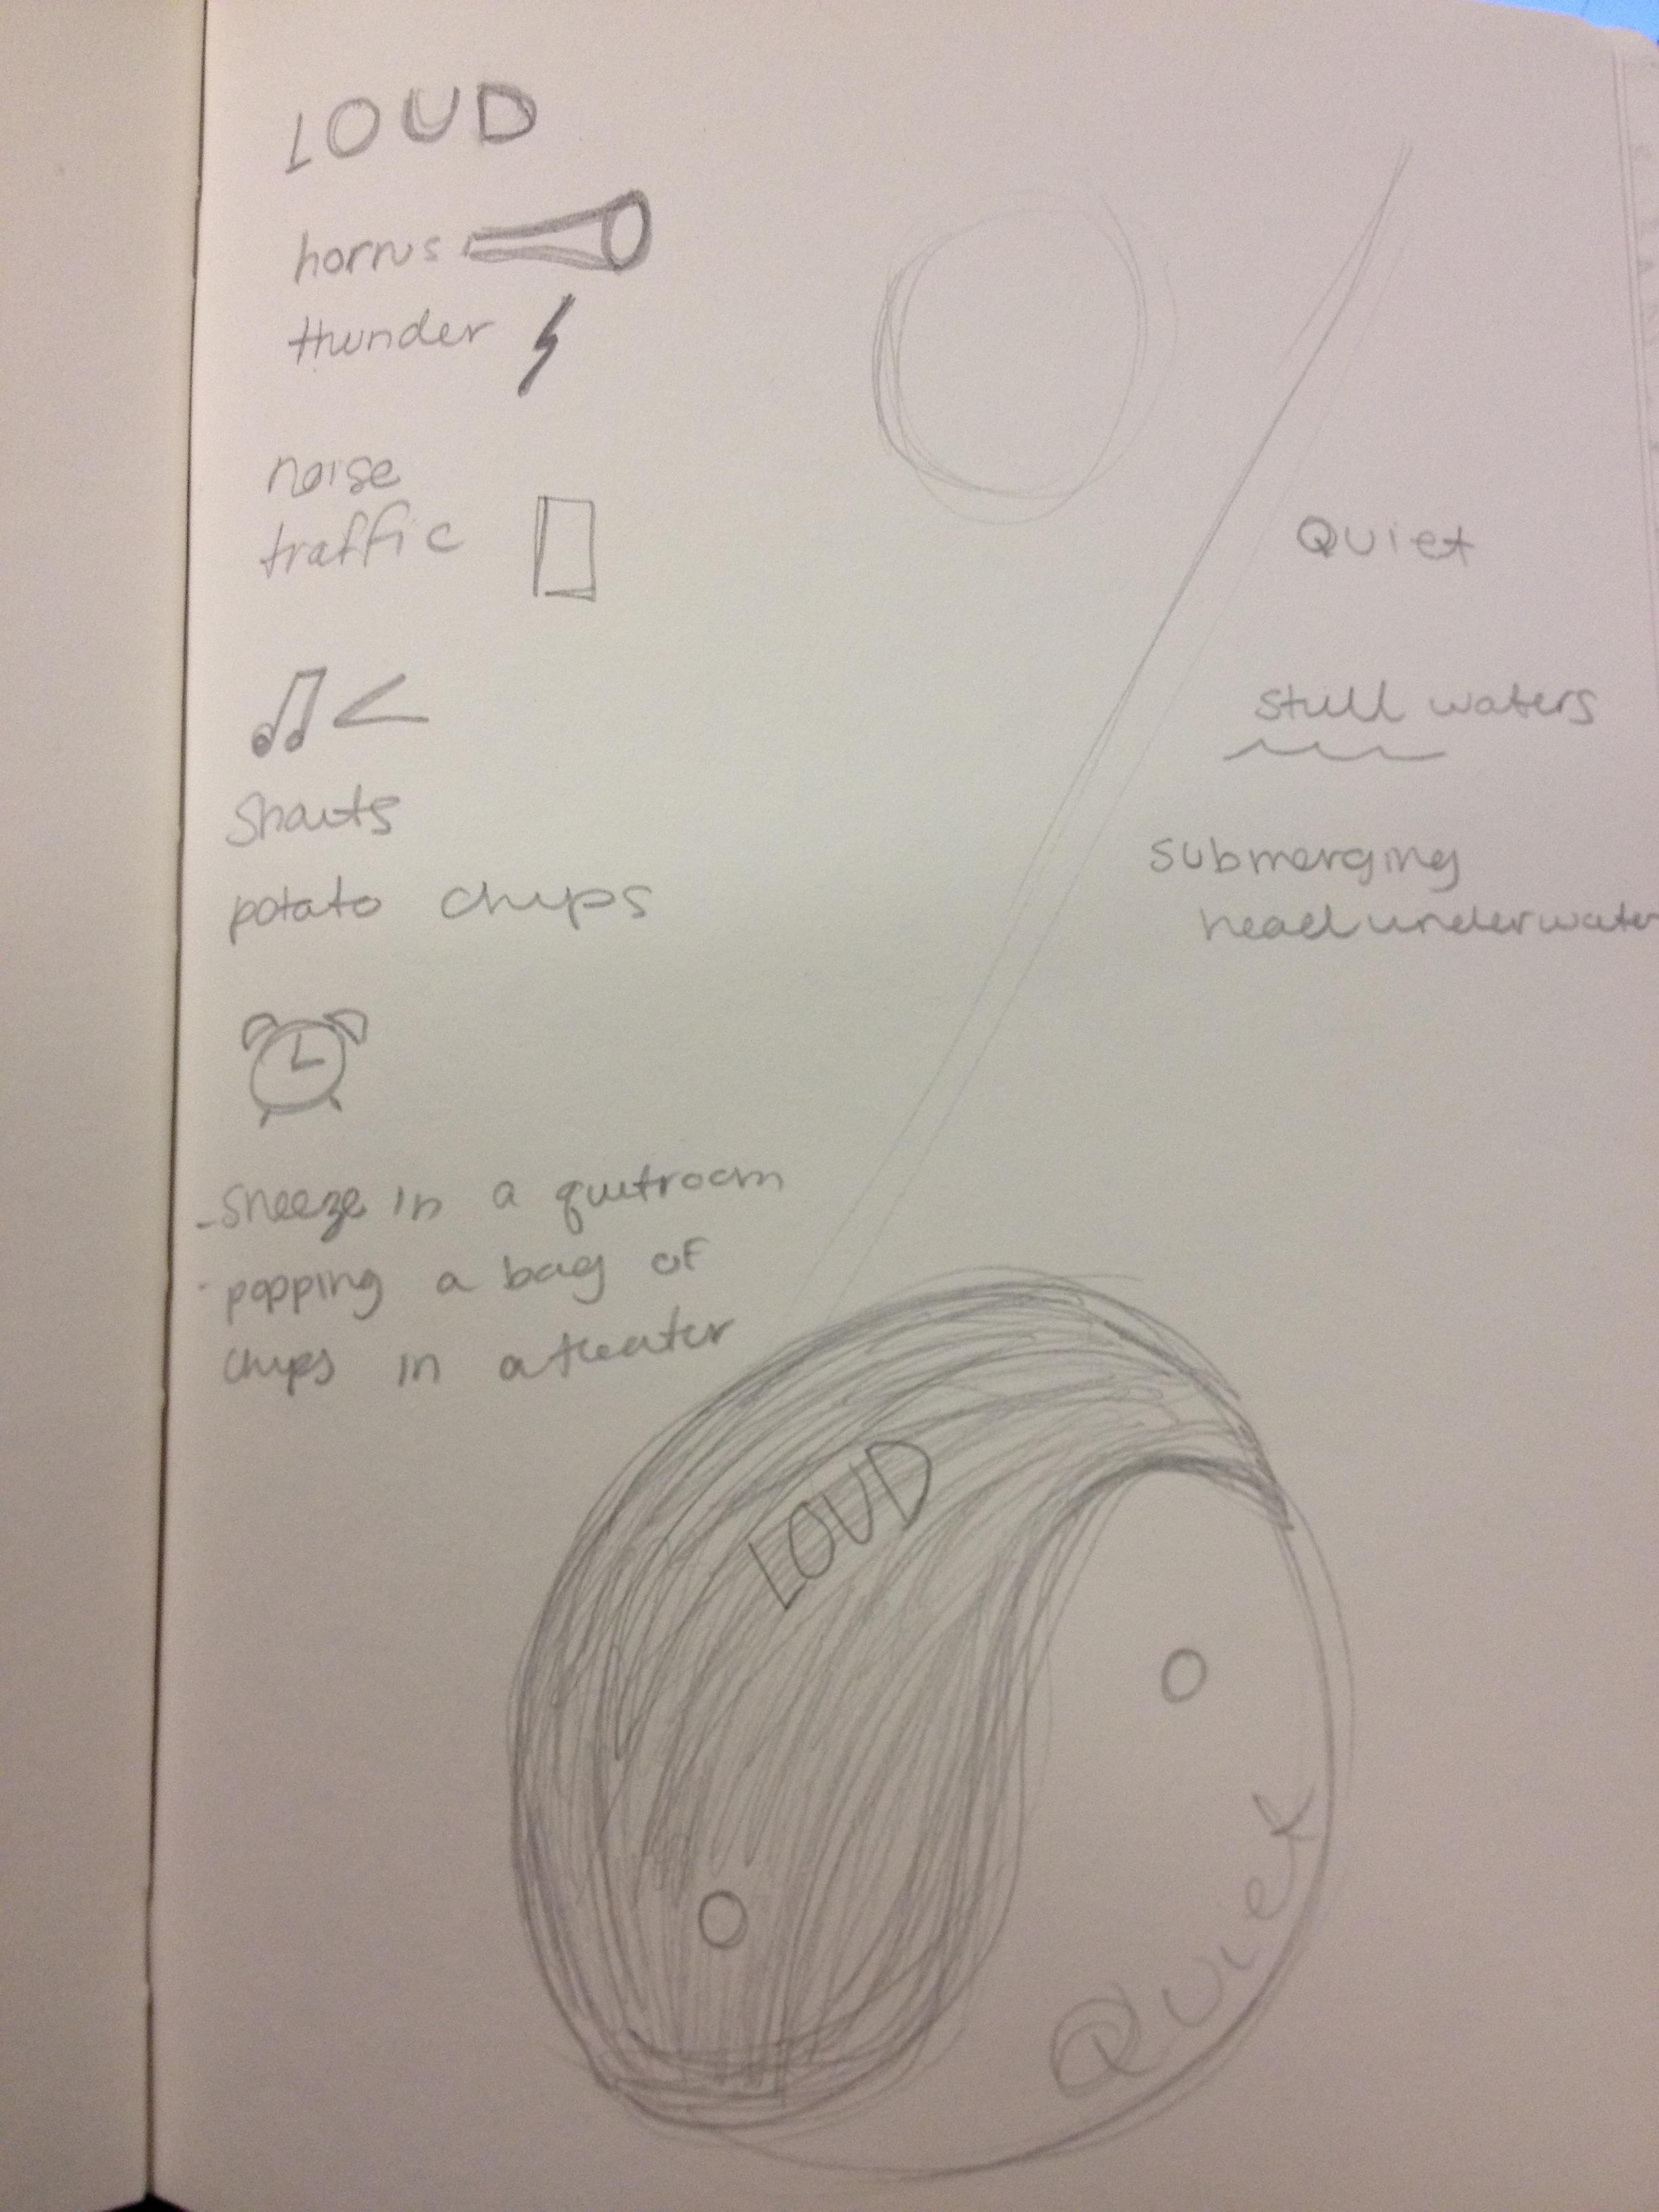 LOUD
horns
thunder
noise
traffic
shouts
potato chips
- sneeze in a quietroom
- popping a bag of
chips in a theater
Quiet
still waters
submerging
head underwater
LOUD
Quiet